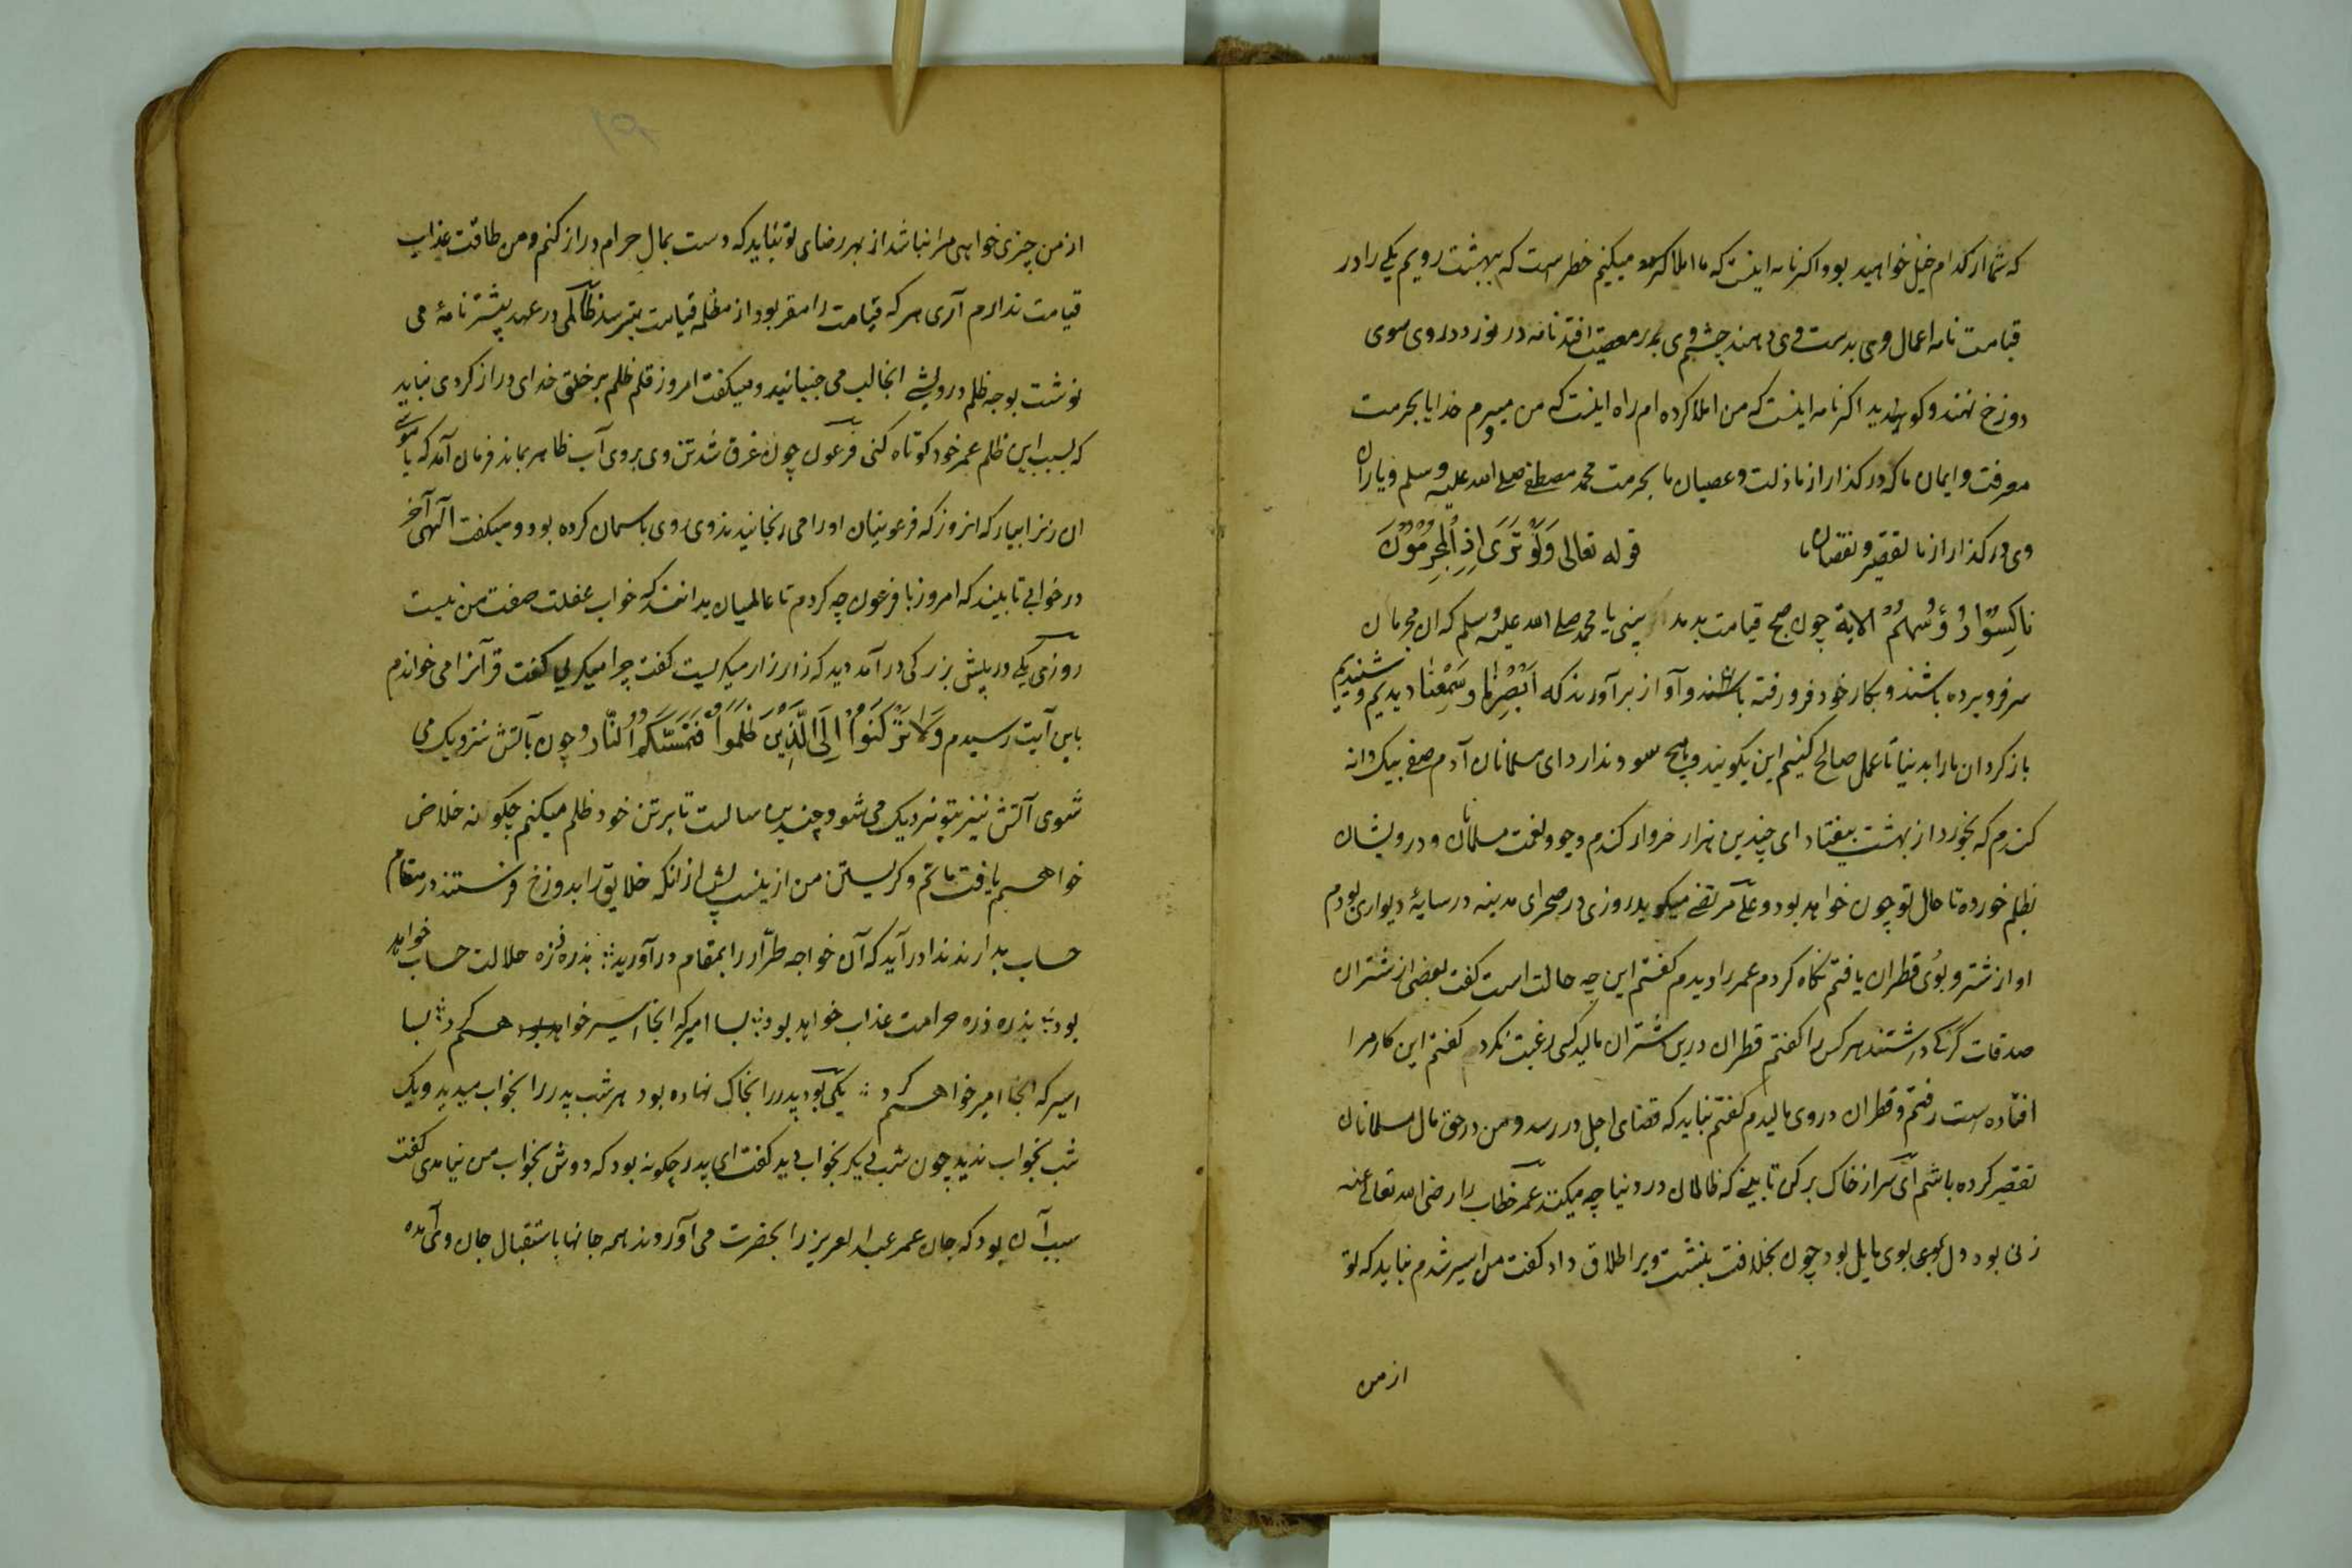 که شما از کدام خیل خواهید بود اکر نامه اینست که ما املا کرده میکنیم خطرست که ببهشت رویم یکی را در
قیامت نامه اعمال وی بدست وی دهند چشم وی بهر معصیت افتد نامه در نوردد روی سوی
دوزخ نهند و کویند اکر نامه اینست که من املا کرده ام راه اینست که من میروم خدایا بحرمت
معرفت و ایمان ما که درکذار از ما ذلت و عصیان ما بحرمت محمد مصطفی صلی الله علیه وسلم و یاران
وی درکذار از ما تقصیر و نقصان ما قوله تعالی وَلَوْ تَرَی اِذِ الْمُجْرِمُوْنَ
ناکِسُوْا رُؤُسِهِمْ الایة چون صبح قیامت بدمد بینی یا محمد صلی الله علیه وسلم که ان مجرمان
سر فرو برده باشند و بکار خود فرو رفته باشند و آواز برآورند که اَبْصَرْنا وَسَمِعْنا دیدیم و شنیدیم
باز کردان ما را بدنیا تا عمل صالح کنیم این بکویند و هیچ سود ندارد ای مسلمانان آدم صفی بیک دانه
کندم که بخورد از بهشت بیفتاد ای چندین هزار خروار کندم و جو و لقمت مسلمانان و درویشان
بظلم خورده تا حال تو چون خواهد بود و علی مرتضی میکوید روزی در صحرای مدینه در سایهٔ دیواری بودم
اواز شتر و بوی قطران یافتم نکاه کردم عمر را دیدم کفتم این چه حالت است کفت بعضی از شتران
صدقات کرکی داشتند هر کس را کفتم قطران درین شتران مالید کسی رغبت نکرد کفتم این کار مرا
افتاده است رفتم و قطران در وی مالیدم کفتم نباید که قضای اجل در رسد و من در حق مال مسلمانان
تقصیر کرده باشم ای سر از خاک برکن تا بینی که ظالمان در دنیا چه میکنند عمر خطاب را رضی الله تعالی عنه
زنی بود دل بوی مایل بود چون بخلافت بنشست ویرا طلاق داد کفت من اسیر شدم نباید که تو
از من
از من چیزی خواهی مرا نباشد از بهر رضای تو نباید که دست بمال حرام دراز کنم و من طاقت عذاب
قیامت ندارم آری هر که قیامت را مقر بود از مظلمه قیامت بترسد ظالمی در عهد پیشتر نامهٔ می
نوشت بوجه ظلم درویشی انجا لب می جنبانید و میکفت امروز قلم ظلم بر خلق خدای دراز کردی نباید
که بسبب این ظلم عمر خود کوتاه کنی فرعون چون غرق شد تن وی بروی آب ظاهر بماند فرمان آمد که یا موسی
ان زنرا بیار که انروز که فرعونیان او را می رنجانیدند وی روی باسمان کرده بود و میکفت الهی آخر
در خوابی تا ببیند که امروز با فرعون چه کردم تا عالمیان بدانند که خواب غفلت صفت من نیست
روزی یکی در پیش بزرکی درآمد دید که زار زار میکریست کفت چرا میکریی کفت قرآنرا می خواندم
باین آیت رسیدم وَلَا تَرْکَنُوْا اِلَی الَّذِیْنَ ظَلَمُوْا فَتَمَسَّکُمُ النَّار و چون بآتش نزدیک می
شوی آتش نیز بتو نزدیک می شود و چندین سالست تا بر تن خود ظلم میکنم چکونه خلاص
خواهم یافت ماتم و کریستن من ازینست پیش از انکه خلایق را بدوزخ فرستند در مقام
حساب بدارند ندا درآید که آن خواجه طرار را بمقام درآورید؛ بذره ذره حلالت حساب خواهد
بود؛ بذره ذره حرامت عذاب خواهد بود؛ بسا امیر که انجا اسیر خواهم کرد؛ بسا
اسیر که انجا امیر خواهم کرد؛ یکی بود پدر را بخاک نهاده بود هر شب پدر را بخواب میدید و یک
شب بخواب ندید چون شب دیکر بخواب دید کفت ای پدر چکونه بود که دوش بخواب من نیامدی کفت
سبب آن بود که جان عمر عبد العزیز را بحضرت می آوردند همه جانها باستقبال جان وی آمده